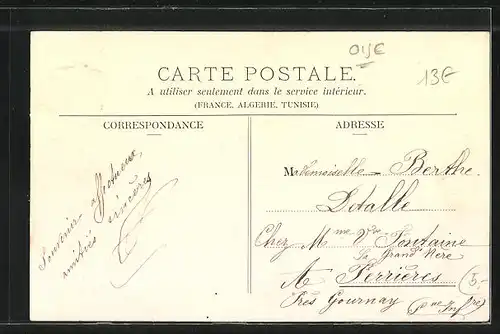 OISE
13E
CARTE POSTALE.
A utiliser seulement dans le service intérieur.
(FRANCE, ALGERIE, TUNISIE)
CORRESPONDANCE
Souvenir affectueux,
amitiés sincères
ADRESSE
Mademoiselle Berthe
Detalle
Chez Mme Vve Fontaine
Sa Grand Mère
A Ferrières
Près Gournay (Sne Infre)
5,-